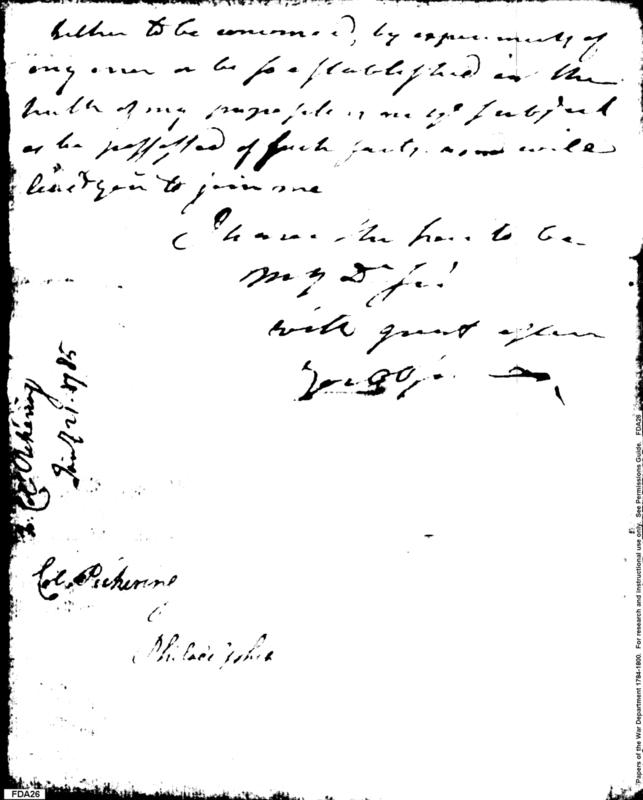 either to be convinced, by experiments of
my error or be so established in the
truth of my on my subject
as be possessed of such facts as will
lead you to join me
I have the honor to be
My Dr Sir
with great esteem
Your
To Col. Pickering
Jany 21. 1785
Col. Pickering
Philadelphia
Papers of the War Department 1784-1800. For research and instructional use only. See Permissions Guide. FDA26
FDA26